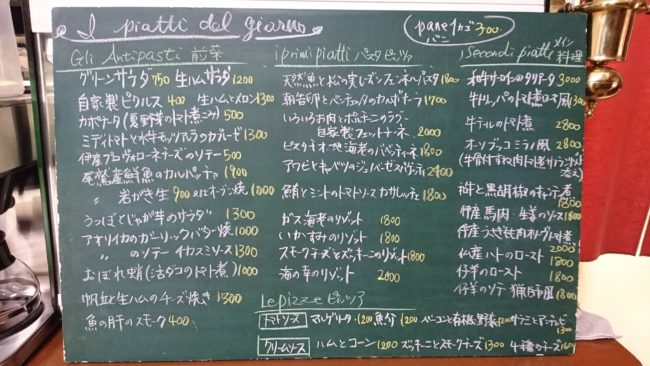 I piatti del giorno
pane 1カゴ 300
パーニ
Gli Antipasti 前菜
グリーンサラダ 750 生ハムサラダ 1200
自家製ピクルス 400 生ハムとメロン 1300
カポナータ(夏野菜のトマト煮こみ) 500
ミディトマトと水牛モッツァラのカプレーゼ 1300
伊産プロヴォローネチーズのソテー 500
尾鷲産鮮魚のカルパッチョ 1900
〃 岩がき 生 900 又はオーブン焼 1000
うつぼとじゃが芋のサラダ 1300
アオリイカのガーリックバター焼 1000
〃 のソテー イカスミソース 1300
おぼれ蛸(活ダコのトマト煮) 1000
帆立と生ハムのチーズ焼き 1300
魚の肝のスモーク 400
i primi piatti パスタ ピッツァ
天然魚と松の実レーズン フェンネルパスタ 1800
朝台卵とパンチェッタのカルボナーラ 1700
いろいろお肉とポルチーニのラグー
自家製フェットチーネ 2000
ピスタチオと地海老のバヴェッティーネ 1800
アワビとキャベツのジェノバーゼスパゲティ 2400
鮪とミントのトマトソース カサレッチェ 1800
ガス海老のリゾット 1800
いかすみのリゾット 1800
スモークチーズとズッキーニのリゾット 1800
海の幸のリゾット 2000
i Secondi piatti メイン料理
和牛サーロインのタリアータ 3000
牛トリッパのトマト煮ローマ風 1300
牛テールのトマト煮 2800
オーソブッコミラノ風 2800
(牛骨付すね肉トマト煮サフランリゾット添え)
豚と黒胡椒のポンテ煮 1800
伊産馬肉 生姜のソース 1800
伊産うさぎもも肉オリーブトマト煮 2000
仏産ハトのロースト
仔羊のロースト 1800
仔羊のソテー 猟師風 1800
Le pizze ピッツァ
トマトソース マルゲリータ 1200 魚介 1200 ベーコンと有機野菜 1200 サラミとアンチョビ 1300
クリームソース ハムとコーン 1200 ズッキーニとスモークチーズ 1300 4種のチーズ 1600